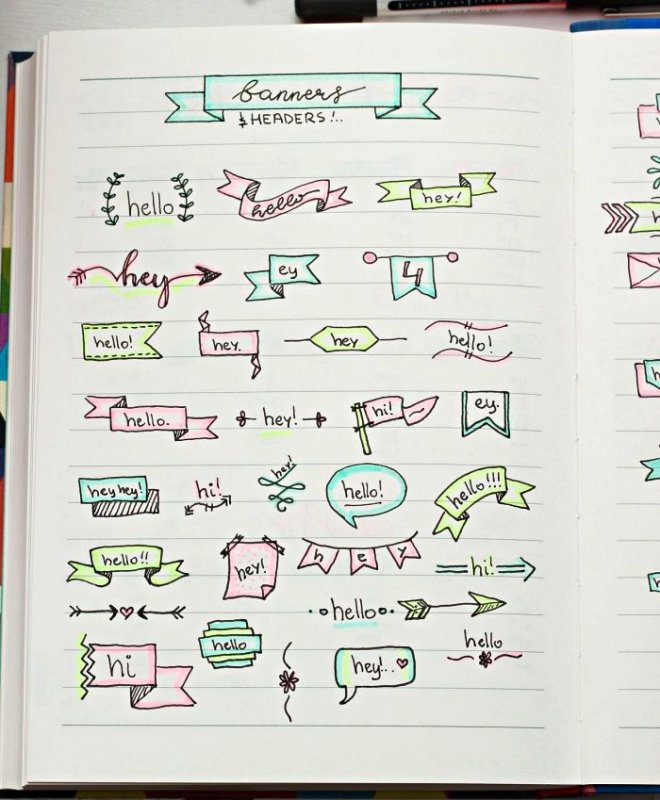 banners
& HEADERS!..
hello hello hey!
hey ey 4
hello! hey. hey hello!
hello. hey! hi! ey.
hey hey! hi! hey! hello! hello!!!
hello!! hey! hey hi!
hello
hi hello hey!.. hello